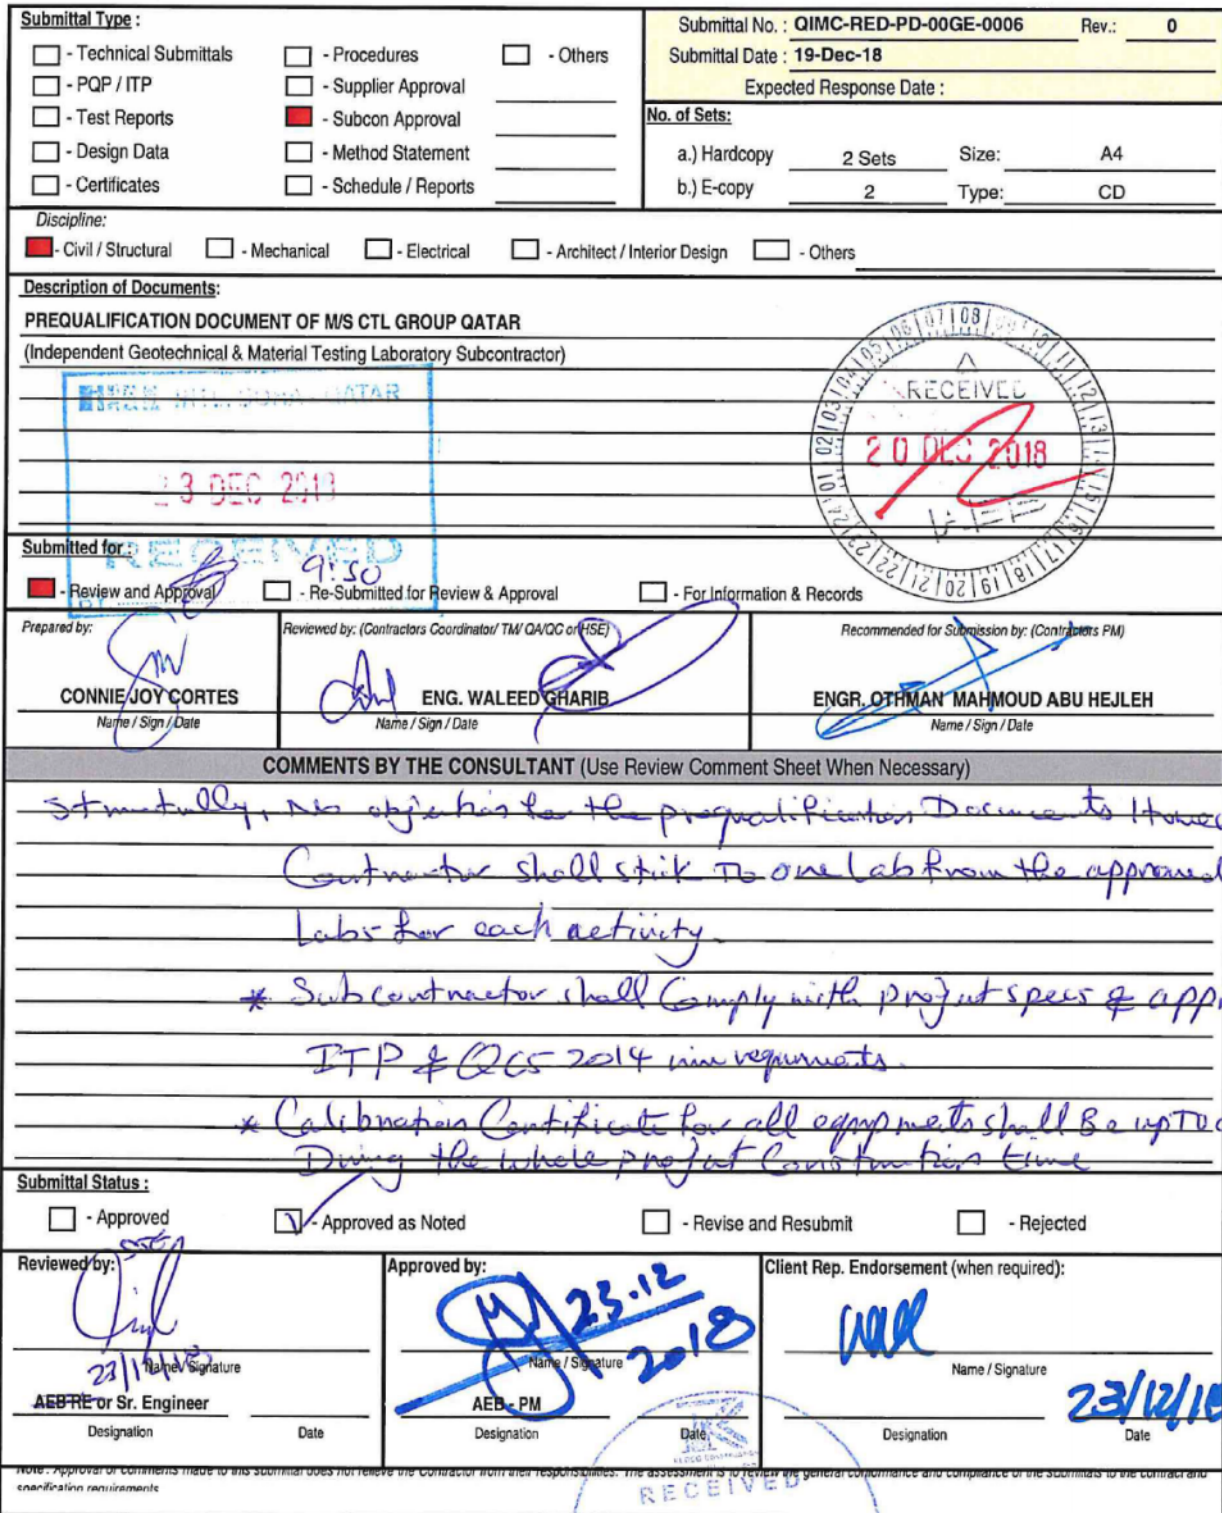 Submittal Type :
- Technical Submittals
- Procedures
- Others
- PQP / ITP
- Supplier Approval
- Test Reports
- Subcon Approval
- Design Data
- Method Statement
- Certificates
- Schedule / Reports
Submittal No. : QIMC-RED-PD-00GE-0006 Rev.: 0
Submittal Date : 19-Dec-18
Expected Response Date :
No. of Sets:
a.) Hardcopy 2 Sets Size: A4
b.) E-copy 2 Type: CD
Discipline:
- Civil / Structural - Mechanical - Electrical - Architect / Interior Design - Others
Description of Documents:
PREQUALIFICATION DOCUMENT OF M/S CTL GROUP QATAR
(Independent Geotechnical & Material Testing Laboratory Subcontractor)
QATAR
3 DEC 2018
RECEIVED
9:50
RECEIVED
20 DEC 2018
Submitted for :
- Review and Approval - Re-Submitted for Review & Approval - For Information & Records
Prepared by:
CONNIE JOY CORTES
Name / Sign / Date
Reviewed by: (Contractors Coordinator/ TM/ QA/QC or HSE)
ENG. WALEED GHARIB
Name / Sign / Date
Recommended for Submission by: (Contractors PM)
ENGR. OTHMAN MAHMOUD ABU HEJLEH
Name / Sign / Date
COMMENTS BY THE CONSULTANT (Use Review Comment Sheet When Necessary)
No objection for the prequalification Documents
Contractor shall stick To one Lab from the approved
Labs for each activity.
* Subcontractor shall Comply with project specs &
ITP & QCS 2014 min requirments.
* Calibration Certificate for all equipments shall Be up To
During the whole project Construction time
Submittal Status :
- Approved - Approved as Noted - Revise and Resubmit - Rejected
Reviewed by:
23/12/18
Name / Signature
AEB-RE or Sr. Engineer
Designation Date
Approved by:
23.12
2018
Name / Signature
AEB - PM
Designation Date
Client Rep. Endorsement (when required):
Name / Signature
23/12/18
Designation Date
RECEIVED
Note : Approval or comments made to this submittal does not relieve the Contractor from their responsibilities. The assessment is to review the general conformance and compliance of the submittals to the contract and
specification requirements